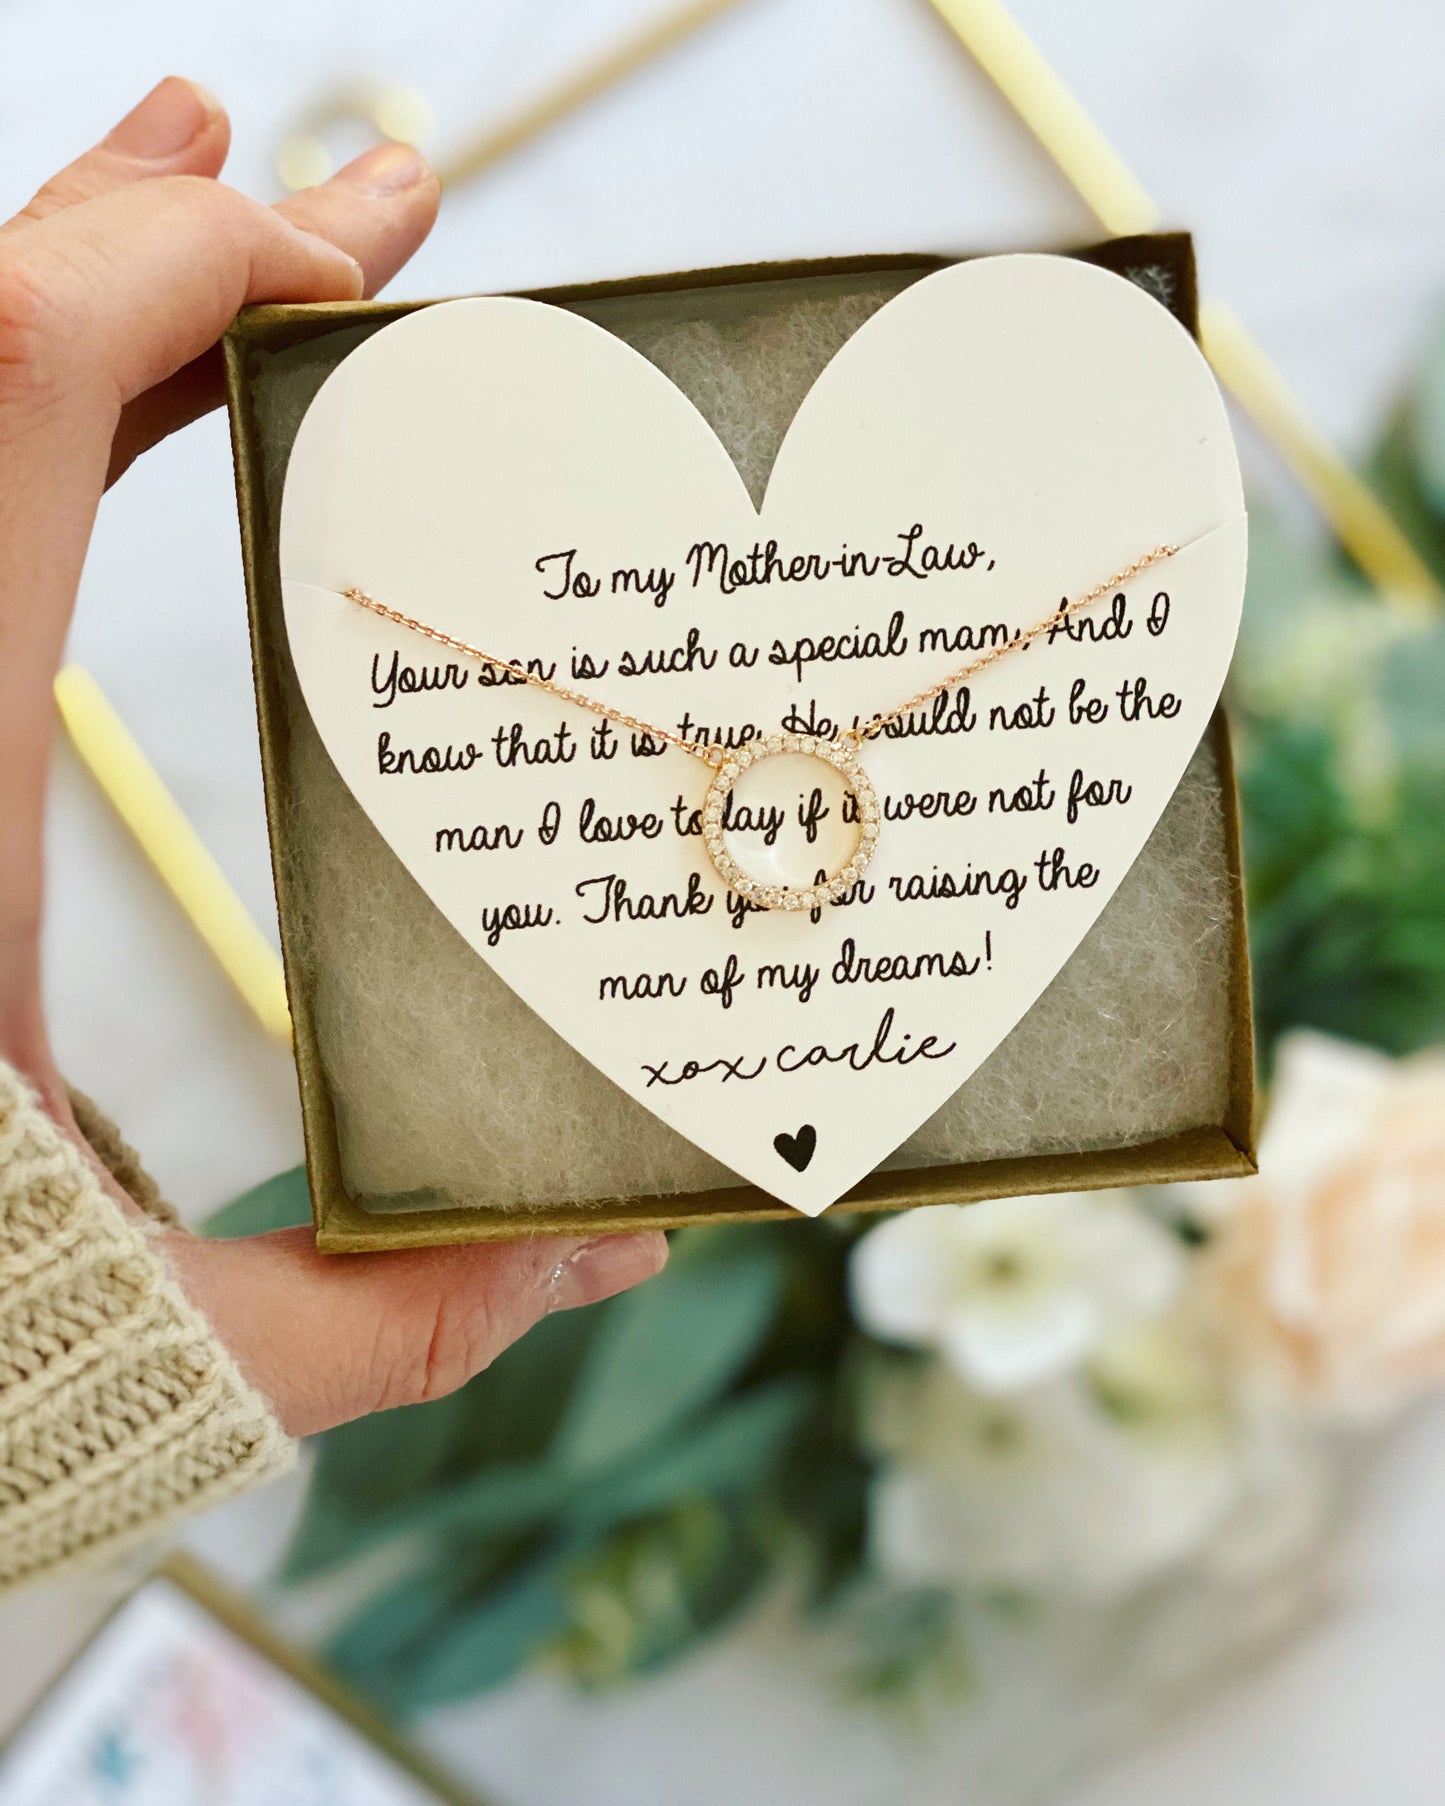 To my Mother-in-Law,
Your son is such a special man. And I
know that it is true. He would not be the
man I love today if it were not for
you. Thank you for raising the
man of my dreams!
xox carlie